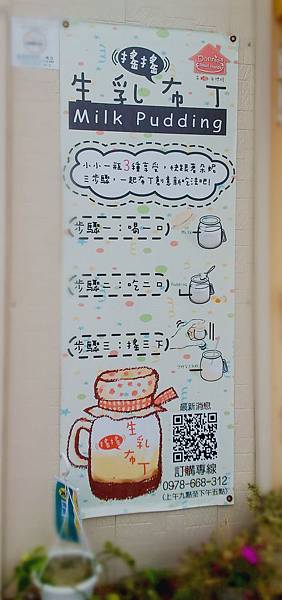 搖搖
Donna's
生乳布丁
Milk Pudding
小小一瓶3種享受，快跟著朵娜
三步驟，一起布丁創意新吃法吧！
步驟一：喝一口
Milk
步驟二：吃二口
Pudding
步驟三：搖三下
生乳
搖搖
布丁
最新消息
訂購專線
0978-668-312
(上午九點至下午五點)